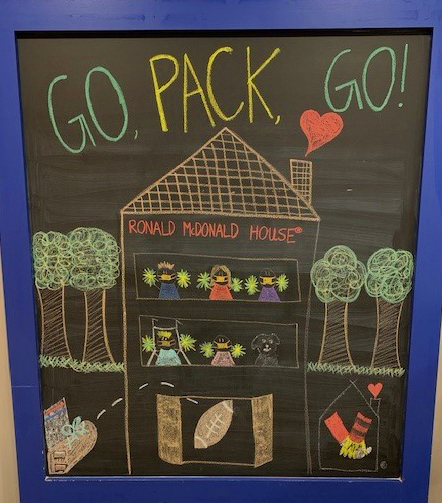 GO, PACK, GO!
RONALD McDONALD HOUSE®